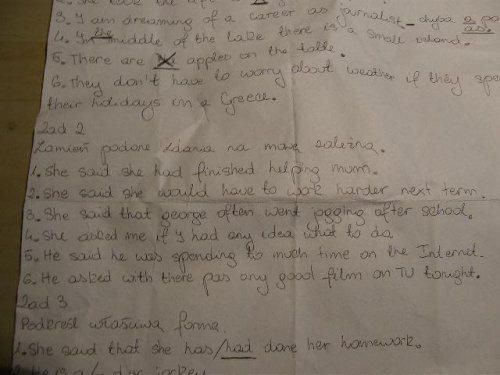 2. She took the
3. I am dreaming of a career as journalist_ chyba a po
4. In the middle of the lake there is a small island.
5. There are apples on the table.
6. They don't have to worry about weather if they spe
their holidays in a Greece.
Zad 2
Zamień podane zdania na mowę zależną.
1. She said she had finished helping mum.
2. She said she would have to work harder next term.
3. She said that george often went jogging after school.
4. She asked me if I had any idea what to do
5. He said he was spending to much time on the Internet.
6. He asked with there pas any good film on TV tonight.
Zad 3
Podkreśl właściwą formę.
1. She said that she has/had done her homework.